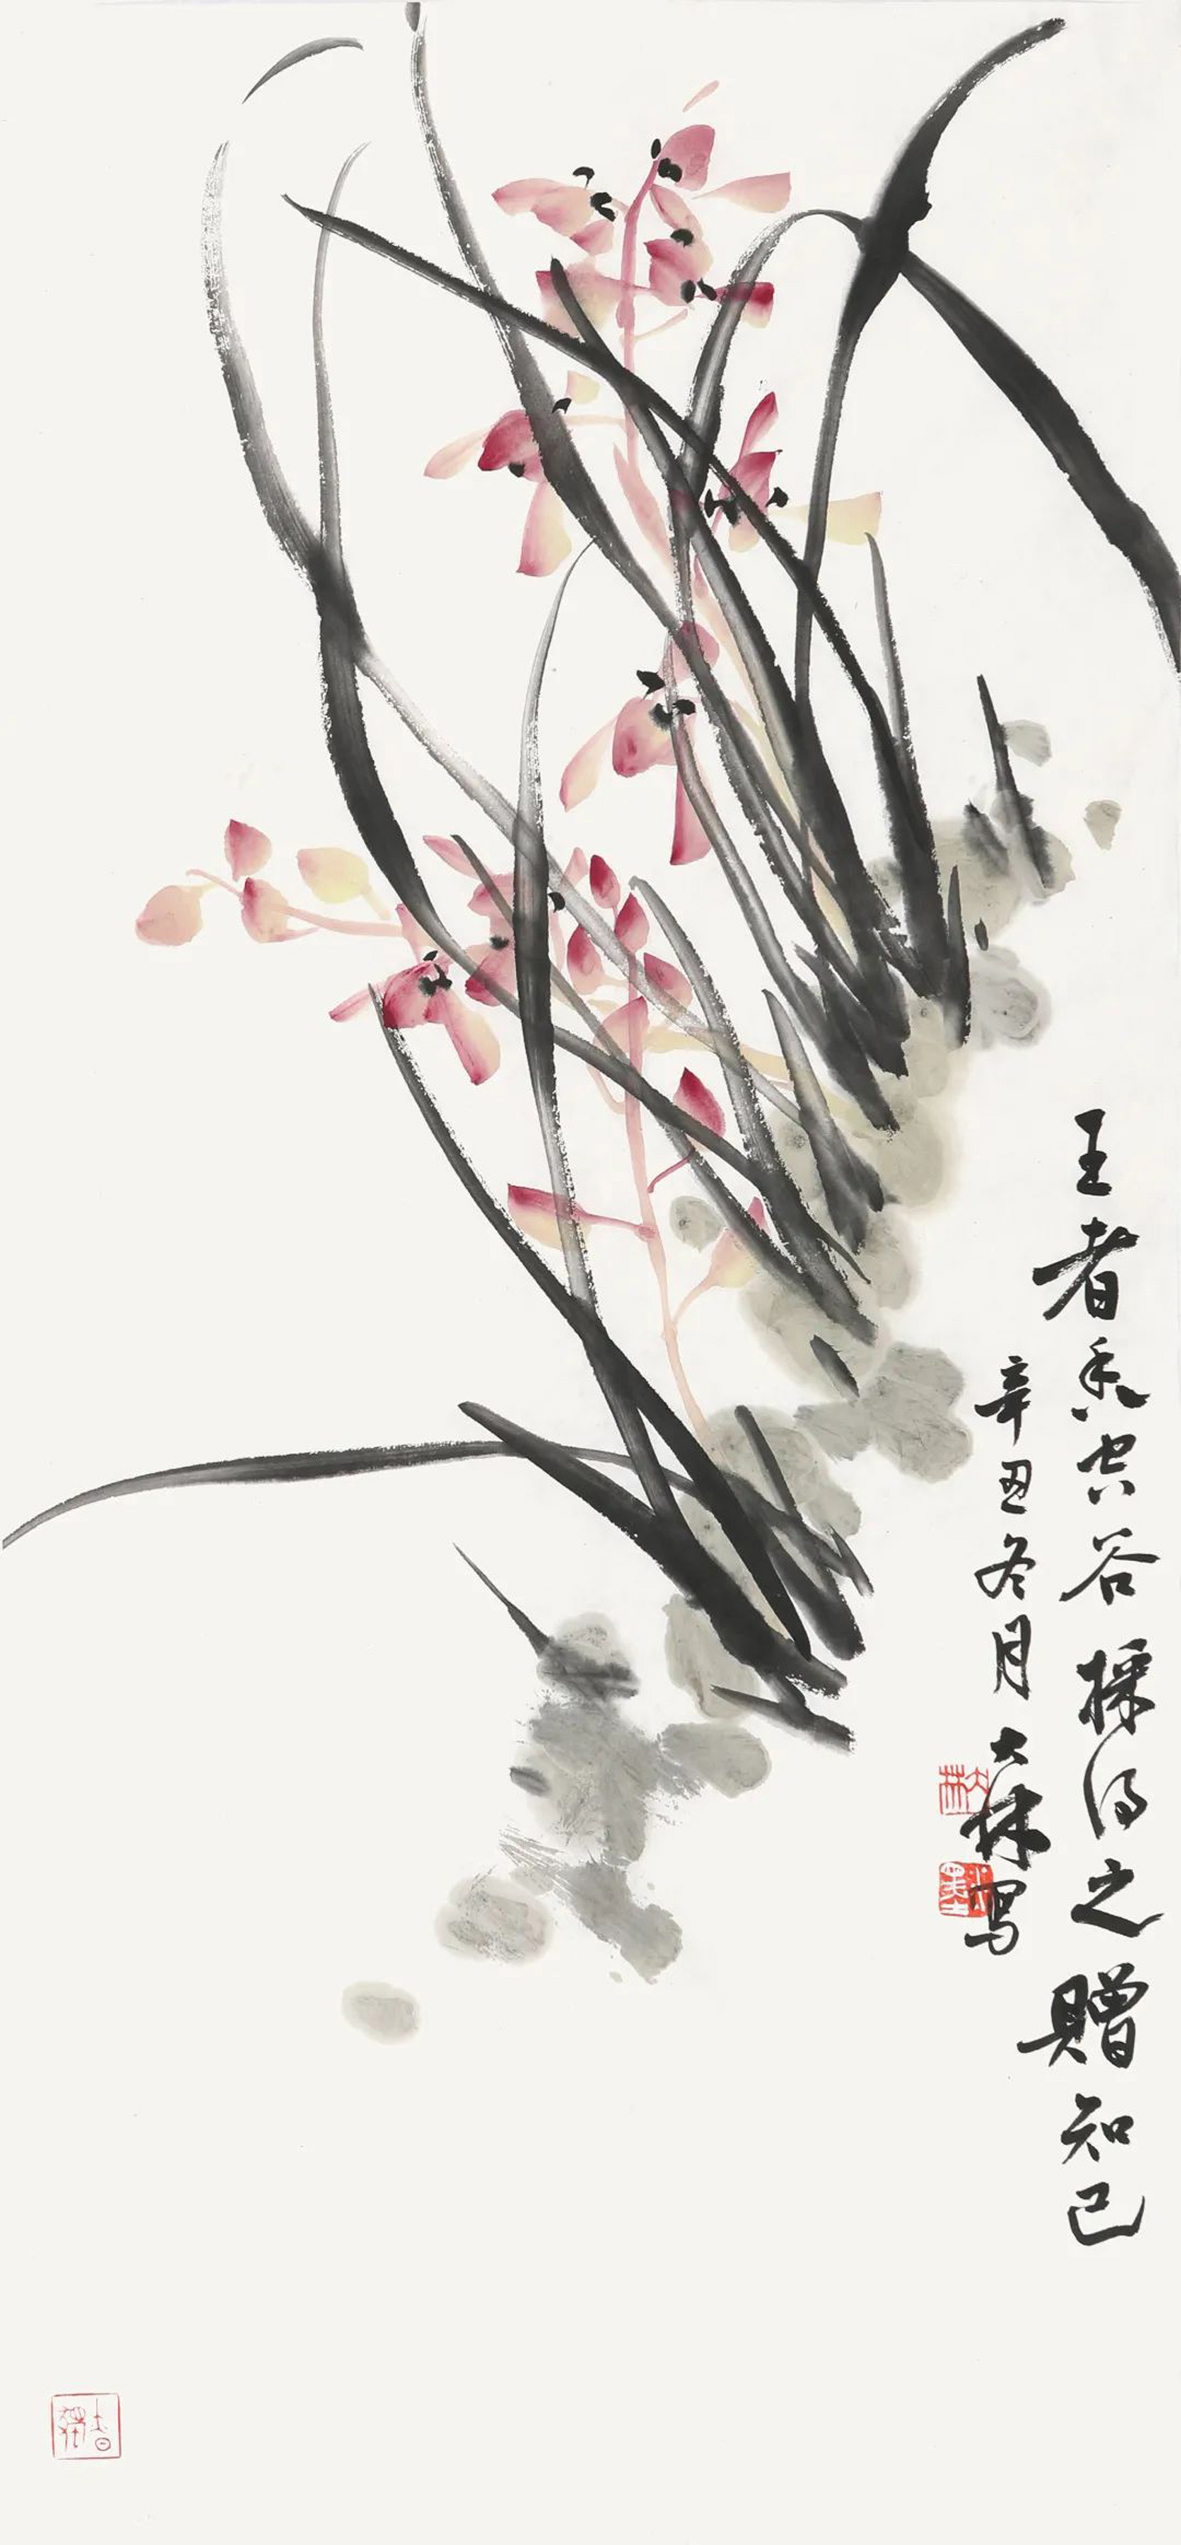 王者香空谷採得之贈知己
辛丑冬月大林写
大林